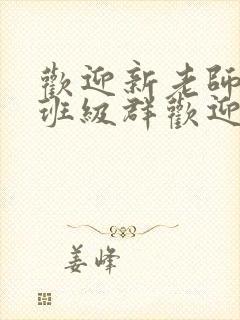 歡迎新老師
班級群歡迎
姜峰